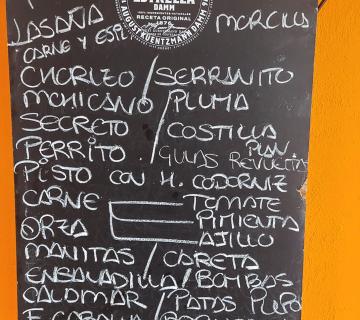 ESTRELLA
DAMM
RECETA ORIGINAL
1876
AUGUST KUENTZMANN DAMM
LASAÑA MORCILLA
CARNE Y ESPI
CHORIZO / SERRANITO
MONTCANO / PLUMA
SECRETO / COSTILLA
PERRITO / GULAS REVUELTAS PLAN.
PISTO CON H. CODORNIZ
CARNE TOMATE
ORZA PIMIENTA
AJILLO
MANITAS / CARETA
ENSALADILLA / BOMBAS
CALAMAR / PATAS PULPO